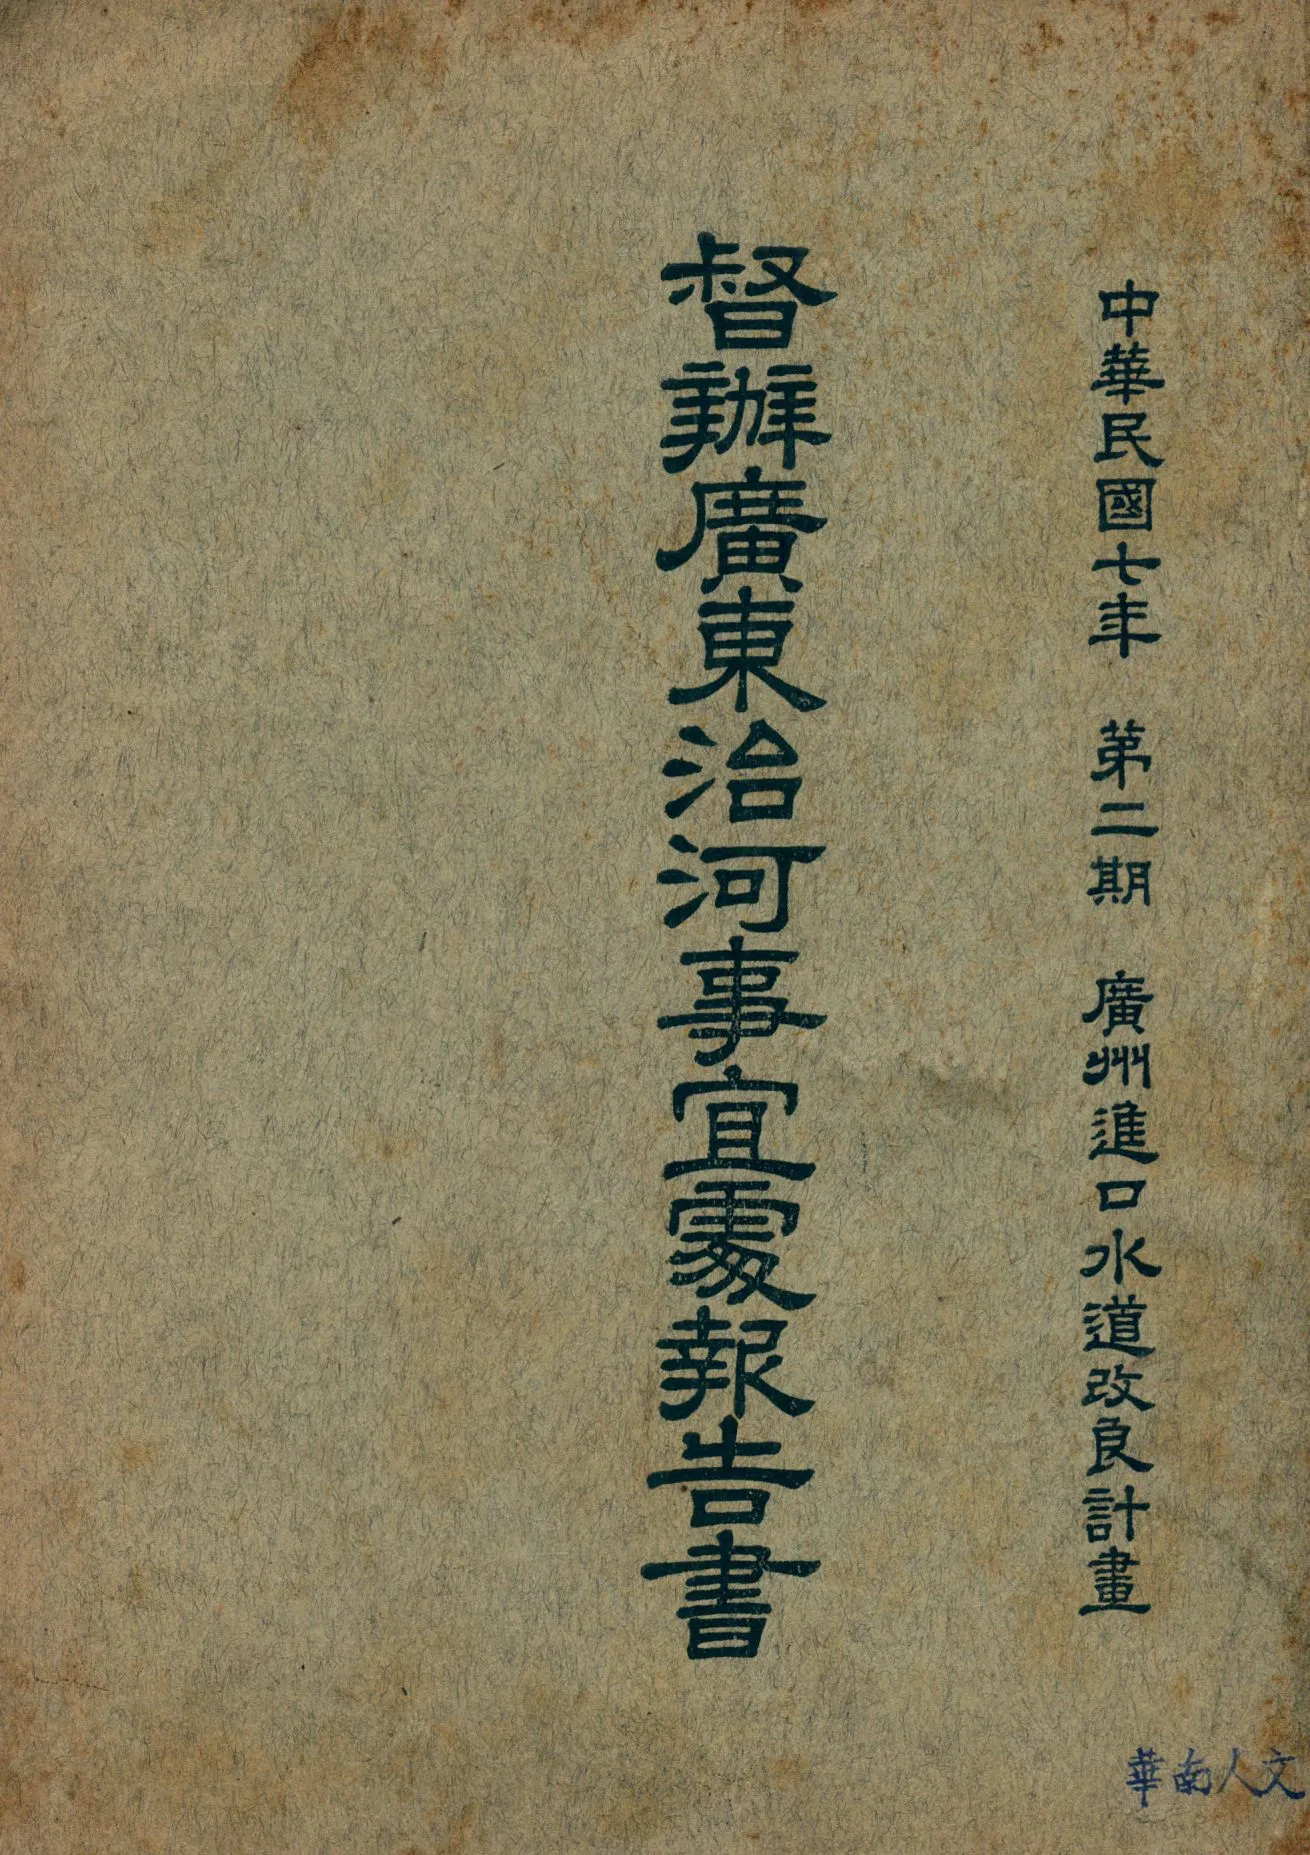 中華民國七年 第二期 廣州進口水道改良計畫
督辦廣東治河事宜處報告書
華南人文